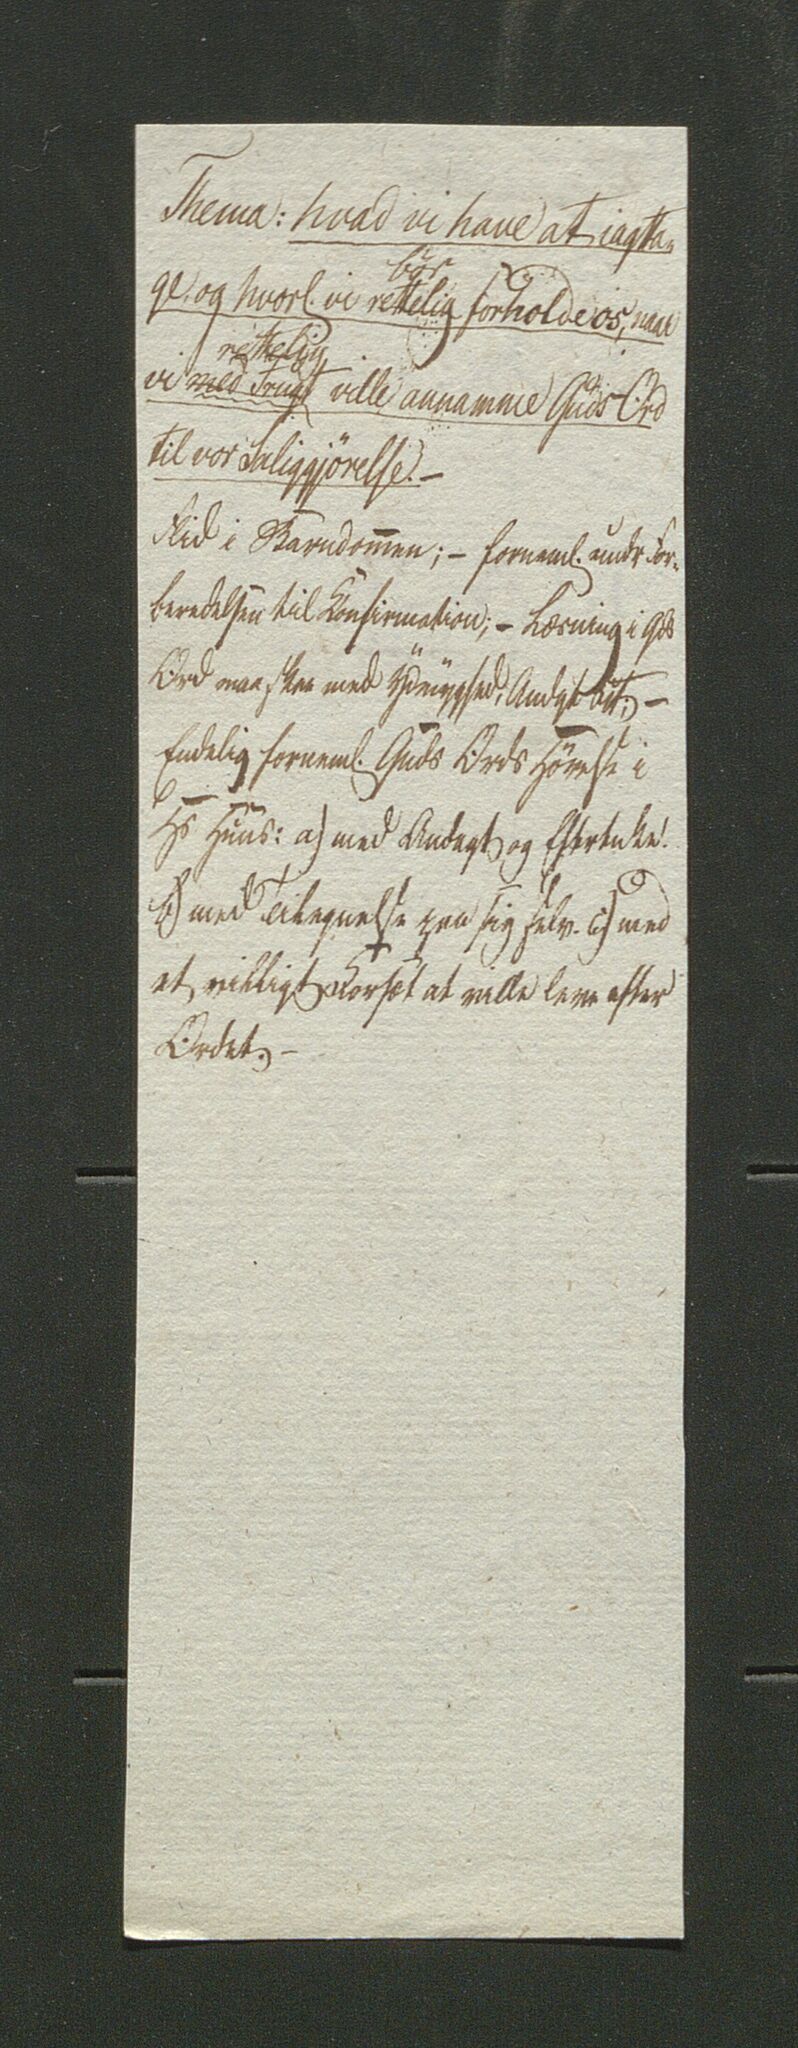 Thema: hvad vi have at iagtta-
ge, og hvorl. vi bör rettelig forholde os, naar
vi med Frugt rettelig ville annamme Guds Ord
til vor Saliggjörelse. –
Flid i Barndommen; – forneml. undr For-
beredelsen til Konfirmation; – Læsning i Gds
Ord maa skee med Ydmyghed, Andagt –
Endelig forneml. Guds Ords Hörelse i
Hs Huus: a) med Andagt og Eftertnke.
b) med Tilegnelse paa sig selv. c) med
et villigt Forsæt at ville leve efter
Ordet. –